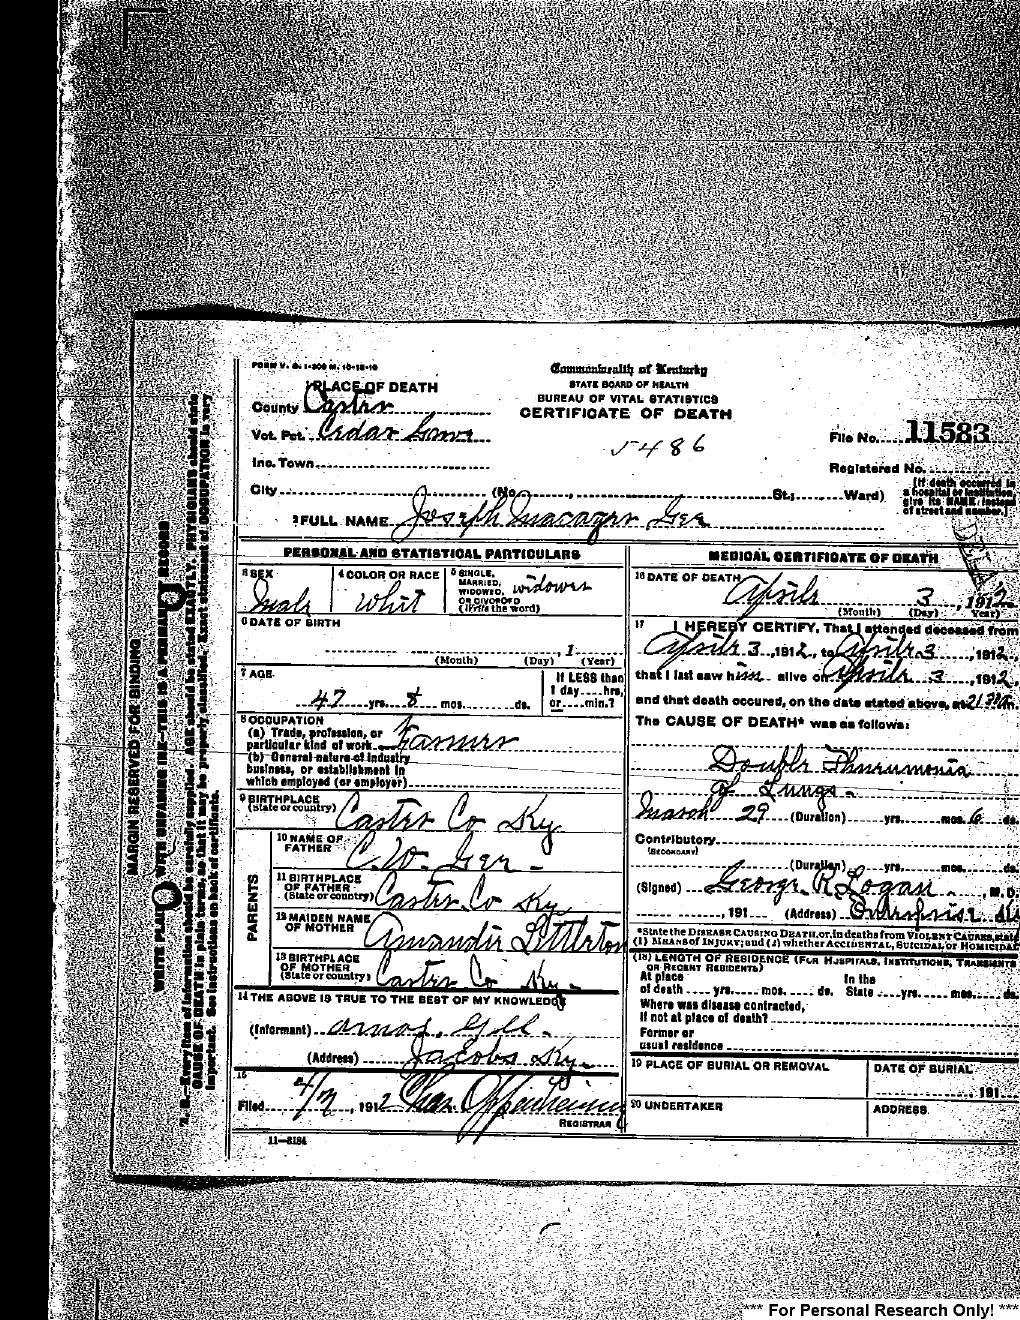 FORM V. S. 1-300 M. 10-18-10
Commonwealth of Kentucky
STATE BOARD OF HEALTH
BUREAU OF VITAL STATISTICS
CERTIFICATE OF DEATH
1 PLACE OF DEATH
County Carter
Vot. Pct. Cedar Grove
Inc. Town
City (No. , St.; Ward)
5486
File No. 11583
Registered No.
[If death occurred in
a hospital or institution,
give its NAME instead
of street and number.]
2 FULL NAME Joseph Gee
PERSONAL AND STATISTICAL PARTICULARS
3 SEX
Male
4 COLOR OR RACE
Whit
5 SINGLE,
MARRIED,
WIDOWED,
OR DIVORCED
(Write the word)
widower
6 DATE OF BIRTH
, 1
(Month) (Day) (Year)
7 AGE
47 yrs. 8 mos. ds.
If LESS than
1 day, hrs.
or min.?
8 OCCUPATION
(a) Trade, profession, or
particular kind of work Farmer
(b) General nature of industry
business, or establishment in
which employed (or employer)
9 BIRTHPLACE
(State or country) Carter Co Ky
PARENTS
10 NAME OF
FATHER C. W. Gee
11 BIRTHPLACE
OF FATHER
(State or country) Carter Co Ky
12 MAIDEN NAME
OF MOTHER Littleton
13 BIRTHPLACE
OF MOTHER
(State or country) Carter Co Ky.
14 THE ABOVE IS TRUE TO THE BEST OF MY KNOWLEDGE
(Informant) Amos Gll
(Address) Jacobs Ky.
15
Filed 4/7, 1912 Chas.
REGISTRAR
11-5184
MEDICAL CERTIFICATE OF DEATH
16 DATE OF DEATH
April 3, 1912
(Month) (Day) Year)
17 I HEREBY CERTIFY, That I attended deceased from
April 3, 1912, to April 3, 1912,
that I last saw him alive on April 3, 1912,
and that death occured, on the date stated above, at m.
The CAUSE OF DEATH* was as follows:
Double Pneumonia
of Lungs
March 29 (Duration) yrs. mos. 6 ds.
Contributory
(SECONDARY)
(Duration) yrs. mos. ds.
(Signed) George R Logan, M. D.
, 191 (Address) Enterprise
*State the DISEASE CAUSING DEATH, or, in deaths from VIOLENT CAUSES, state
(1) MEANS of INJURY; and (2) whether ACCIDENTAL, SUICIDAL, or HOMICIDAL
(18) LENGTH OF RESIDENCE (FOR HOSPITALS, INSTITUTIONS, TRANSIENTS
OR RECENT RESIDENTS)
At place
of death yrs. mos. ds.
In the
State yrs. mos. ds.
Where was disease contracted,
If not at place of death?
Former or
usual residence
19 PLACE OF BURIAL OR REMOVAL
DATE OF BURIAL
, 191
20 UNDERTAKER
ADDRESS
MARGIN RESERVED FOR BINDING
WRITE PLAINLY WITH UNFADING INK—THIS IS A PERMANENT RECORD
N. B.—Every item of information should be carefully supplied. AGE should be stated EXACTLY. PHYSICIANS should state
CAUSE OF DEATH in plain terms, so that it may be properly classified. Exact statement of OCCUPATION is very
important. See instructions on back of certificate.
*** For Personal Research Only! ***